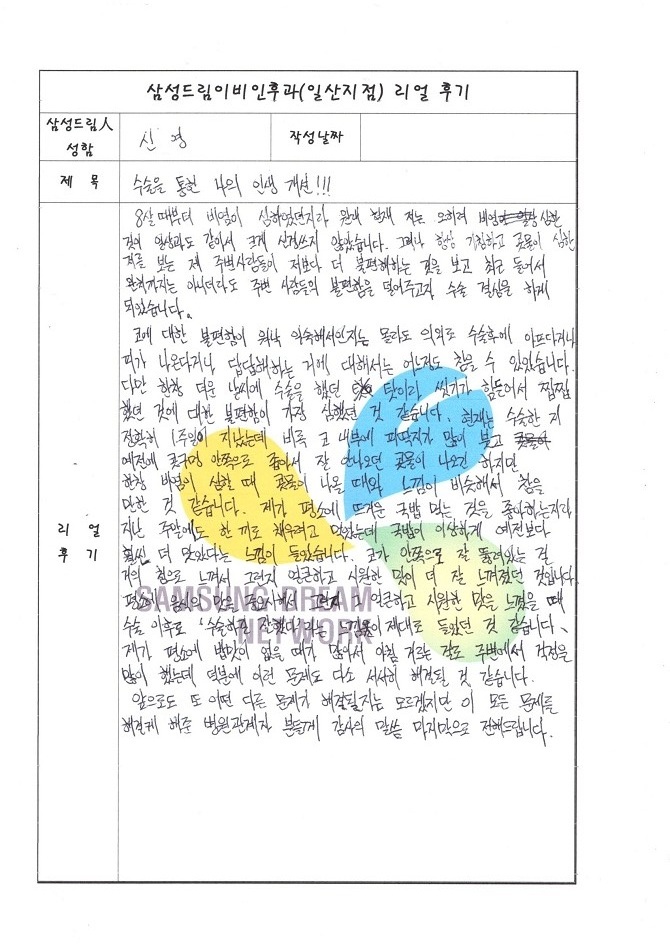 삼성드림이비인후과(일산지점) 리얼 후기
삼성드림人
성함
신 영
작성날짜
제 목
수술을 통한 나의 인생 개선!!!
리 얼
후 기
8살 때부터 비염이 심하였던지라 원래 현재 저는 오히려 비염이 심한
것이 일상과도 같아서 크게 신경쓰지 않았습니다. 그러나 항상 기침하고 콧물이 심한
저를 보는 제 주변사람들이 저보다 더 불편해하는 것을 보고 최근 들어서
완쾌까지는 아니더라도 주변 사람들의 불편함을 덜어주고자 수술 결심을 하게
되었습니다.
코에 대한 불편함이 워낙 익숙해서인지는 몰라도 의외로 수술후에 아프다거나
피가 나온다거나 답답해하는 거에 대해서는 어느정도 참을 수 있었습니다.
다만 한창 더운 날씨에 수술을 했던 탓이라 씻기가 힘들어서 찝찝
했던 것에 대한 불편함이 가장 심했던 것 같습니다. 현재는 수술한 지
정확히 1주일이 지났는데 비록 코 내부에 피딱지가 많이 붙고
예전에 콧구멍 안쪽으로 좁아서 잘 안나오던 콧물이 나오긴 하지만
한창 비염이 심할 때 콧물이 나올 때와 느낌이 비슷해서 참을
만한 것 같습니다. 제가 평소에 뜨거운 국밥 먹는 것을 좋아하는지라
지난 주말에도 한 끼로 채우려고 먹었는데 국밥이 이상하게 예전보다
훨씬 더 맛있다는 느낌이 들었습니다. 코가 안쪽으로 잘 뚫려있는 걸
거의 처음으로 느껴서 그런지 얼큰하고 시원한 맛이 더 잘 느껴졌던 것입니다.
평소에 음식의 맛을 그 얼큰하고 시원한 맛을 느꼈을 때
수술 이후로 '수술하길 잘했다'라는 느낌을 제대로 들었던 것 같습니다.
제가 평소에 밥맛이 없을 때가 많아서 아침 거르는 걸로 주변에서 걱정을
많이 했는데 덕분에 이런 문제도 다소 서서히 해결될 것 같습니다.
앞으로도 또 어떤 다른 문제가 해결될지는 모르겠지만 이 모든 문제를
해결케 해준 병원관계자 분들께 감사의 말씀 마지막으로 전해드립니다.
SAMSUNG DREAM
NETWORK